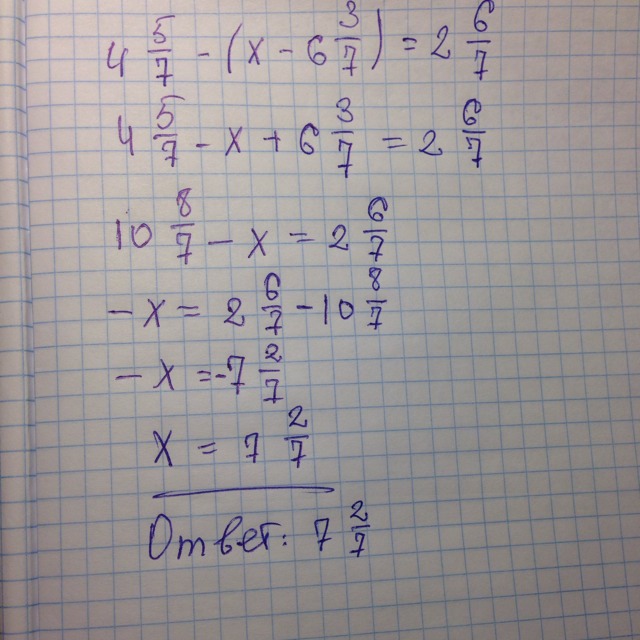 4 5/7 - (x - 6 3/7) = 2 6/7
4 5/7 - x + 6 3/7 = 2 6/7
10 8/7 - x = 2 6/7
- x = 2 6/7 - 10 8/7
- x = -7 2/7
x = 7 2/7
Ответ: 7 2/7